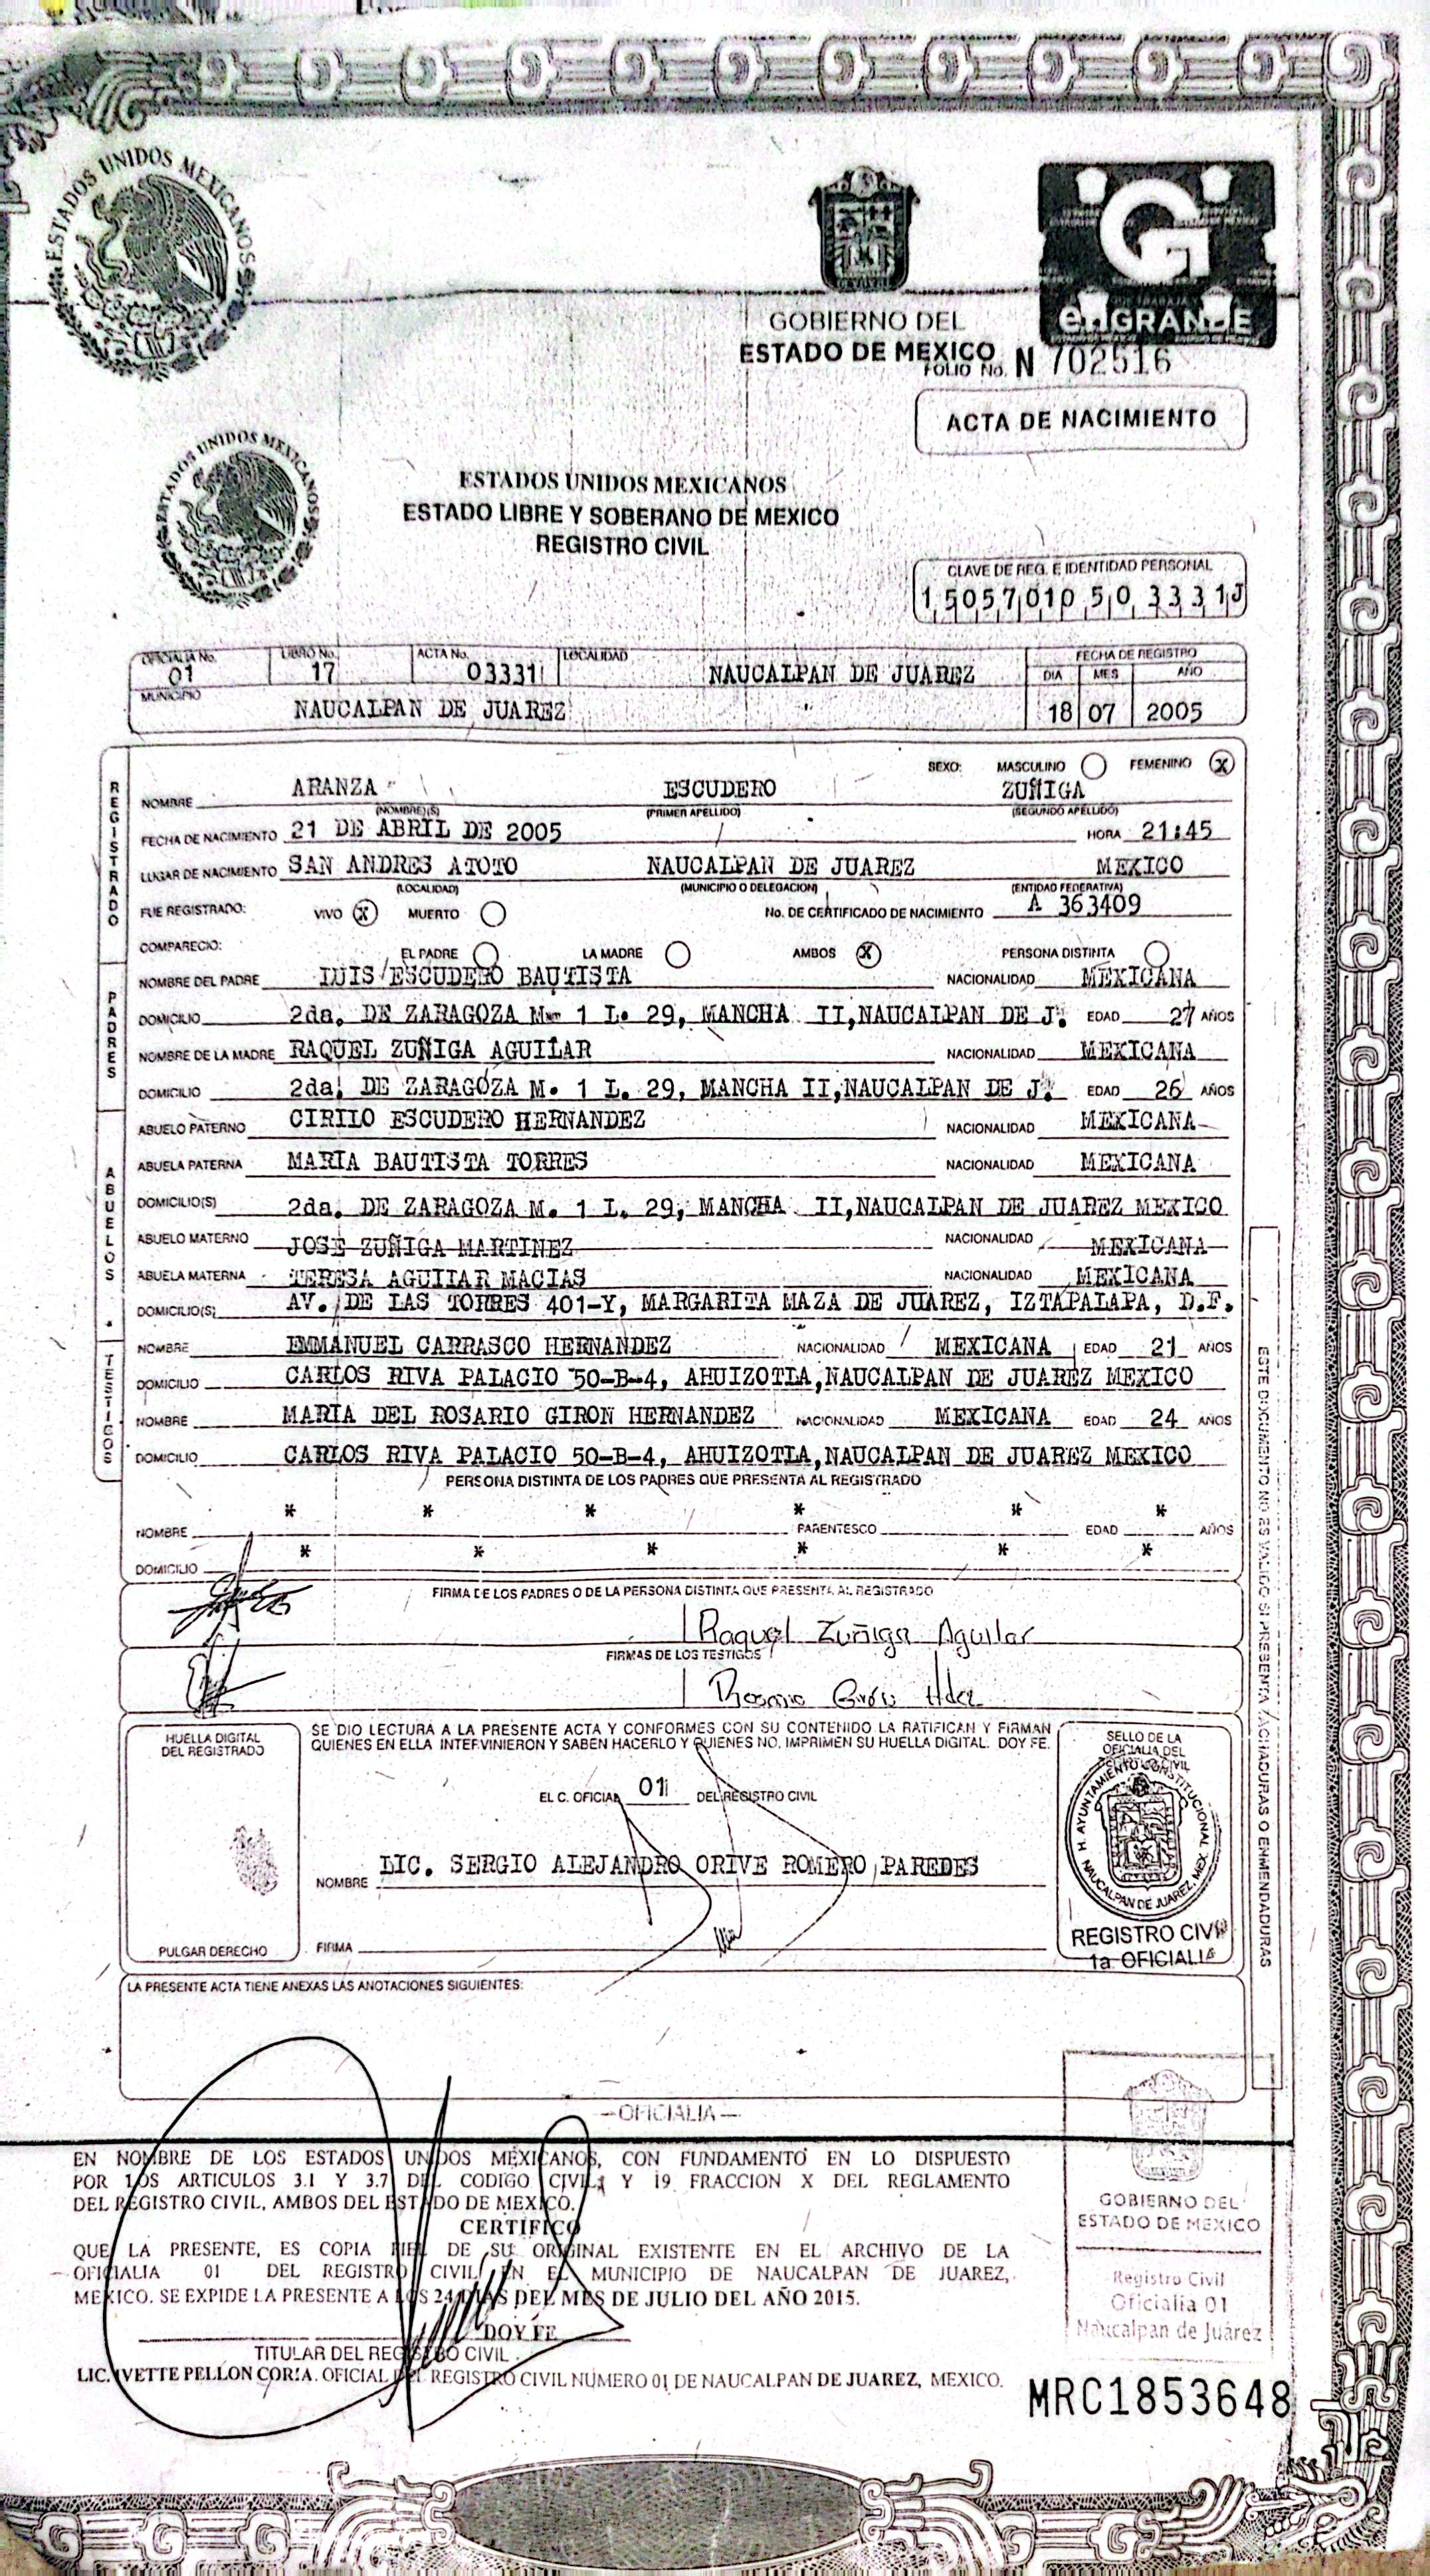 ESTADOS UNIDOS MEXICANOS
GOBIERNO DEL
ESTADO DE MEXICO
G
enGRANDE
FOLIO No. N 702516
ACTA DE NACIMIENTO
ESTADOS UNIDOS MEXICANOS
ESTADOS UNIDOS MEXICANOS
ESTADO LIBRE Y SOBERANO DE MEXICO
REGISTRO CIVIL
CLAVE DE REG. E IDENTIDAD PERSONAL
15057010503331J
OFICIALIA No. LIBRO No. ACTA No. LOCALIDAD FECHA DE REGISTRO
01 17 03331 NAUCALPAN DE JUAREZ DIA MES AÑO
MUNICIPIO
NAUCALPAN DE JUAREZ 18 07 2005
REGISTRADO
SEXO: MASCULINO FEMENINO X
NOMBRE ARANZA ESCUDERO ZUÑIGA
(NOMBRE)(S) (PRIMER APELLIDO) (SEGUNDO APELLIDO)
FECHA DE NACIMIENTO 21 DE ABRIL DE 2005 HORA 21:45
LUGAR DE NACIMIENTO SAN ANDRES ATOTO NAUCALPAN DE JUAREZ MEXICO
(LOCALIDAD) (MUNICIPIO O DELEGACION) (ENTIDAD FEDERATIVA)
FUE REGISTRADO: VIVO X MUERTO No. DE CERTIFICADO DE NACIMIENTO A 363409
COMPARECIO: EL PADRE LA MADRE AMBOS X PERSONA DISTINTA
PADRES
NOMBRE DEL PADRE LUIS ESCUDERO BAUTISTA NACIONALIDAD MEXICANA
DOMICILIO 2da. DE ZARAGOZA M. 1 L. 29, MANCHA II,NAUCALPAN DE J. EDAD 27 AÑOS
NOMBRE DE LA MADRE RAQUEL ZUÑIGA AGUILAR NACIONALIDAD MEXICANA
DOMICILIO 2da. DE ZARAGOZA M. 1 L. 29, MANCHA II,NAUCALPAN DE J. EDAD 26 AÑOS
ABUELOS
ABUELO PATERNO CIRILO ESCUDERO HERNANDEZ NACIONALIDAD MEXICANA
ABUELA PATERNA MARIA BAUTISTA TORRES NACIONALIDAD MEXICANA
DOMICILIO(S) 2da. DE ZARAGOZA M. 1 L. 29, MANCHA II,NAUCALPAN DE JUAREZ MEXICO
ABUELO MATERNO JOSE ZUÑIGA MARTINEZ NACIONALIDAD MEXICANA
ABUELA MATERNA TERESA AGUILAR MACIAS NACIONALIDAD MEXICANA
DOMICILIO(S) AV. DE LAS TORRES 401-Y, MARGARITA MAZA DE JUAREZ, IZTAPALAPA, D.F.
TESTIGOS
NOMBRE EMMANUEL CARRASCO HERNANDEZ NACIONALIDAD MEXICANA EDAD 21 AÑOS
DOMICILIO CARLOS RIVA PALACIO 50-B-4, AHUIZOTLA,NAUCALPAN DE JUAREZ MEXICO
NOMBRE MARIA DEL ROSARIO GIRON HERNANDEZ NACIONALIDAD MEXICANA EDAD 24 AÑOS
DOMICILIO CARLOS RIVA PALACIO 50-B-4, AHUIZOTLA,NAUCALPAN DE JUAREZ MEXICO
PERSONA DISTINTA DE LOS PADRES QUE PRESENTA AL REGISTRADO
* * * * * *
NOMBRE PARENTESCO EDAD AÑOS
* * * * * *
DOMICILIO
FIRMA DE LOS PADRES O DE LA PERSONA DISTINTA QUE PRESENTA AL REGISTRADO
Raquel Zuñiga Aguilar
FIRMAS DE LOS TESTIGOS
Rosario Girón Hdez
ESTE DOCUMENTO NO ES VALIDO SI PRESENTA TACHADURAS O ENMENDADURAS
HUELLA DIGITAL
DEL REGISTRADO
PULGAR DERECHO
SE DIO LECTURA A LA PRESENTE ACTA Y CONFORMES CON SU CONTENIDO LA RATIFICAN Y FIRMAN
QUIENES EN ELLA INTERVINIERON Y SABEN HACERLO Y QUIENES NO, IMPRIMEN SU HUELLA DIGITAL. DOY FE.
EL C. OFICIAL 01 DEL REGISTRO CIVIL
NOMBRE LIC. SERGIO ALEJANDRO ORIVE ROMERO PAREDES
FIRMA
SELLO DE LA
OFICIALIA DEL
H. AYUNTAMIENTO CONSTITUCIONAL
NAUCALPAN DE JUAREZ, MEX.
REGISTRO CIVIL
1a. OFICIALIA
LA PRESENTE ACTA TIENE ANEXAS LAS ANOTACIONES SIGUIENTES:
OFICIALIA
EN NOMBRE DE LOS ESTADOS UNIDOS MEXICANOS, CON FUNDAMENTO EN LO DISPUESTO
POR LOS ARTICULOS 3.1 Y 3.7 DEL CODIGO CIVIL, Y 19 FRACCION X DEL REGLAMENTO
DEL REGISTRO CIVIL, AMBOS DEL ESTADO DE MEXICO.
CERTIFICO
QUE LA PRESENTE, ES COPIA FIEL DE SU ORIGINAL EXISTENTE EN EL ARCHIVO DE LA
OFICIALIA 01 DEL REGISTRO CIVIL EN EL MUNICIPIO DE NAUCALPAN DE JUAREZ,
MEXICO. SE EXPIDE LA PRESENTE A LOS 24 DIAS DEL MES DE JULIO DEL AÑO 2015.
DOY FE
TITULAR DEL REGISTRO CIVIL
LIC. IVETTE PELLON CORIA. OFICIAL DEL REGISTRO CIVIL NUMERO 01 DE NAUCALPAN DE JUAREZ, MEXICO.
GOBIERNO DEL
ESTADO DE MEXICO
Registro Civil
Oficialia 01
Naucalpan de Juárez
MRC1853648